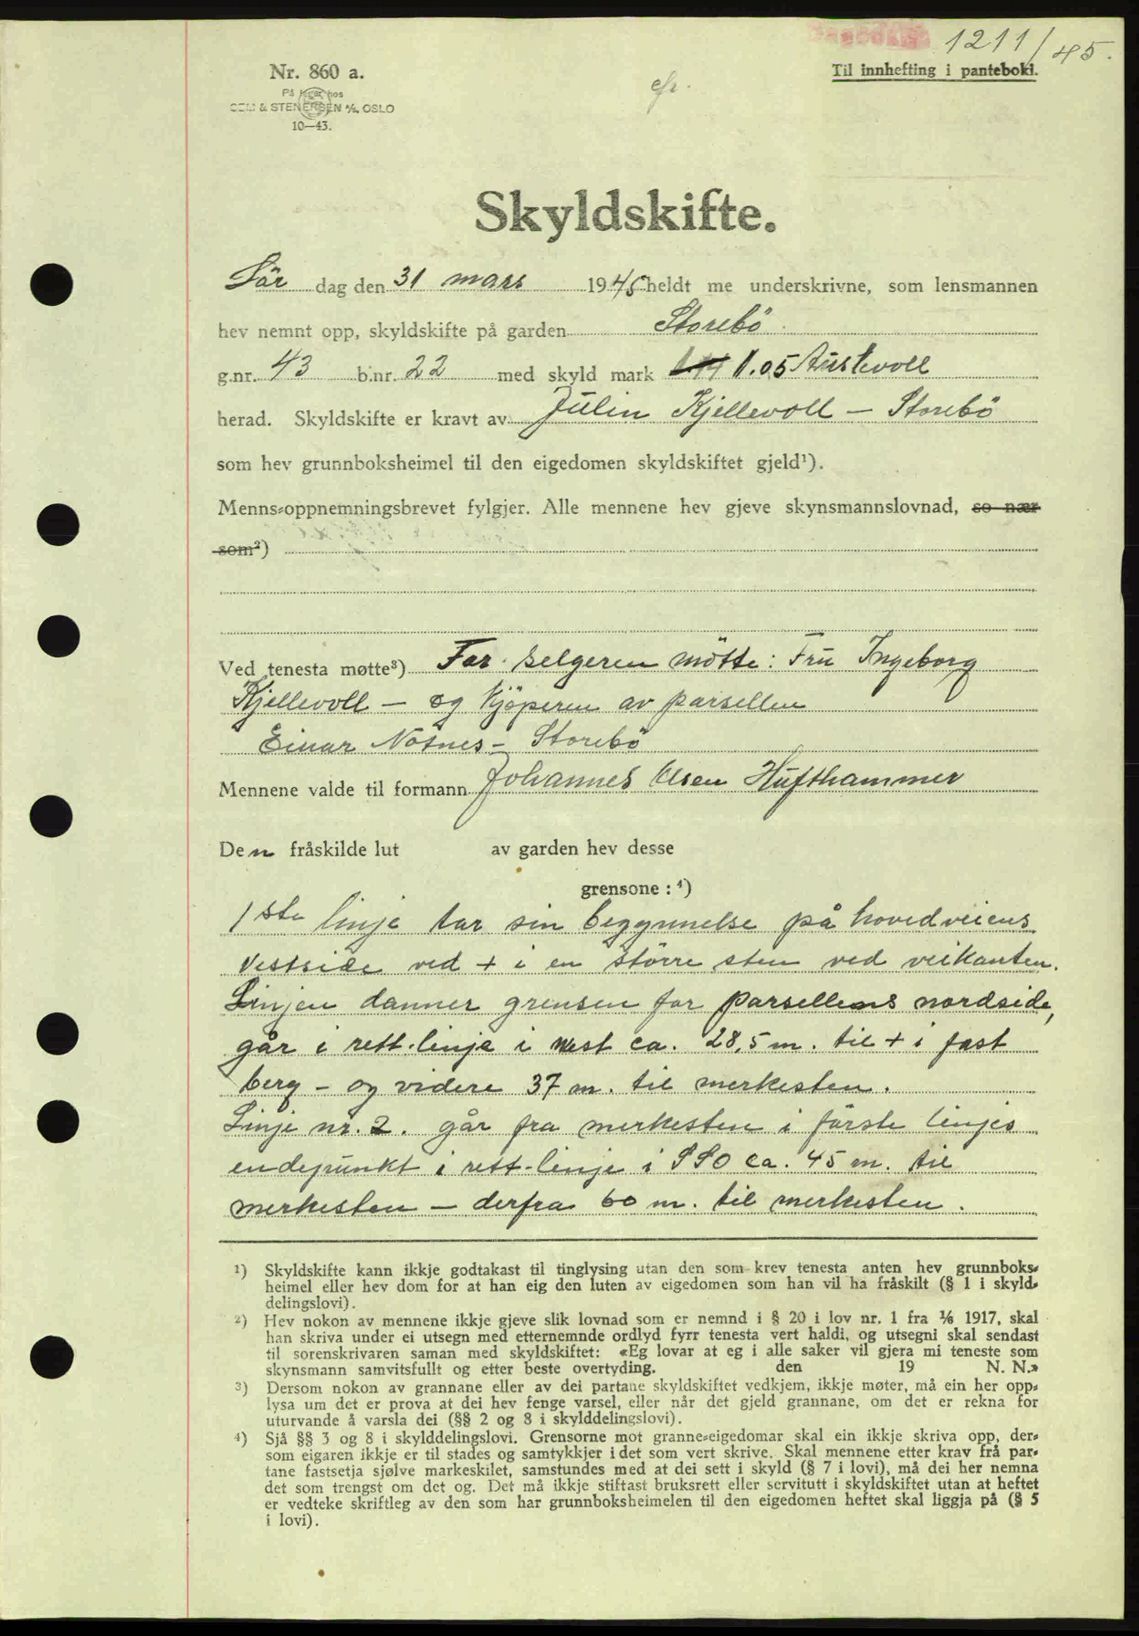 1211/45.
Nr. 860 a.
På lager hos
SEM & STENERSEN A/S, OSLO
10—43.
Til innhefting i panteboki.
Skyldskifte.
Lör dag den 31 mars 1945 heldt me underskrivne, som lensmannen
hev nemnt opp, skyldskifte på garden Storebö
g.nr. 43 b.nr. 22 med skyld mark 1.05 Austevoll
herad. Skyldskifte er kravt av Julin Kjellevoll — Storebö
som hev grunnboksheimel til den eigedomen skyldskiftet gjeld¹).
Menns-oppnemningsbrevet fylgjer. Alle mennene hev gjeve skynsmannslovnad, so nær
som²)
Ved tenesta møtte³) For selgeren mötte: Fru Ingeborg
Kjellevoll — og kjöperen av parsellen
Einar Notnes - Storebö
Mennene valde til formann Johannes Olsen Hufthammer
Den fråskilde lut av garden hev desse
grensone : ⁴)
1ste linje tar sin beggynnelse på hovedveiens
vestside ved + i en större sten ved veikanten.
Linjen danner grensen for parsellens nordside,
går i rett-linje i vest ca. 28,5 m. til + i fast
berg - og videre 37 m. til merkesten.
Linje nr. 2. går fra merkesten i förste linjes
endepunkt i rett-linje i SSO ca. 45 m. til
merkesten — derfra 60 m. til merkesten.
¹) Skyldskifte kann ikkje godtakast til tinglysing utan den som krev tenesta anten hev grunnboks-
heimel eller hev dom for at han eig den luten av eigedomen som han vil ha fråskilt (§ 1 i skyld-
delingslovi).
²) Hev nokon av mennene ikkje gjeve slik lovnad som er nemnd i § 20 i lov nr. 1 fra 1/6 1917, skal
han skriva under ei utsegn med etternemnde ordlyd fyrr tenesta vert haldi, og utsegni skal sendast
til sorenskrivaren saman med skyldskiftet: «Eg lovar at eg i alle saker vil gjera mi teneste som
skynsmann samvitsfullt og etter beste overtyding. den 19 N. N.»
³) Dersom nokon av grannane eller av dei partane skyldskiftet vedkjem, ikkje møter, må ein her opp-
lysa um det er prova at dei hev fenge varsel, eller når det gjeld grannane, om det er rekna for
uturvande å varsla dei (§§ 2 og 8 i skylddelingslovi).
⁴) Sjå §§ 3 og 8 i skylddelingslovi. Grensorne mot granne-eigedomar skal ein ikkje skriva opp, der-
som eigaren ikkje er til stades og samtykkjer i det som vert skrive. Skal mennene etter krav frå par-
tane fastsetja sjølve markeskilet, samstundes med at dei sett i skyld (§ 7 i lovi), må dei her nemna
det som trengst om det og. Det må ikkje stiftast bruksrett eller servitutt i skyldskiftet utan at heftet
er vedteke skriftleg av den som har grunnboksheimelen til den eigedomen heftet skal liggja på (§ 5
i lovi).